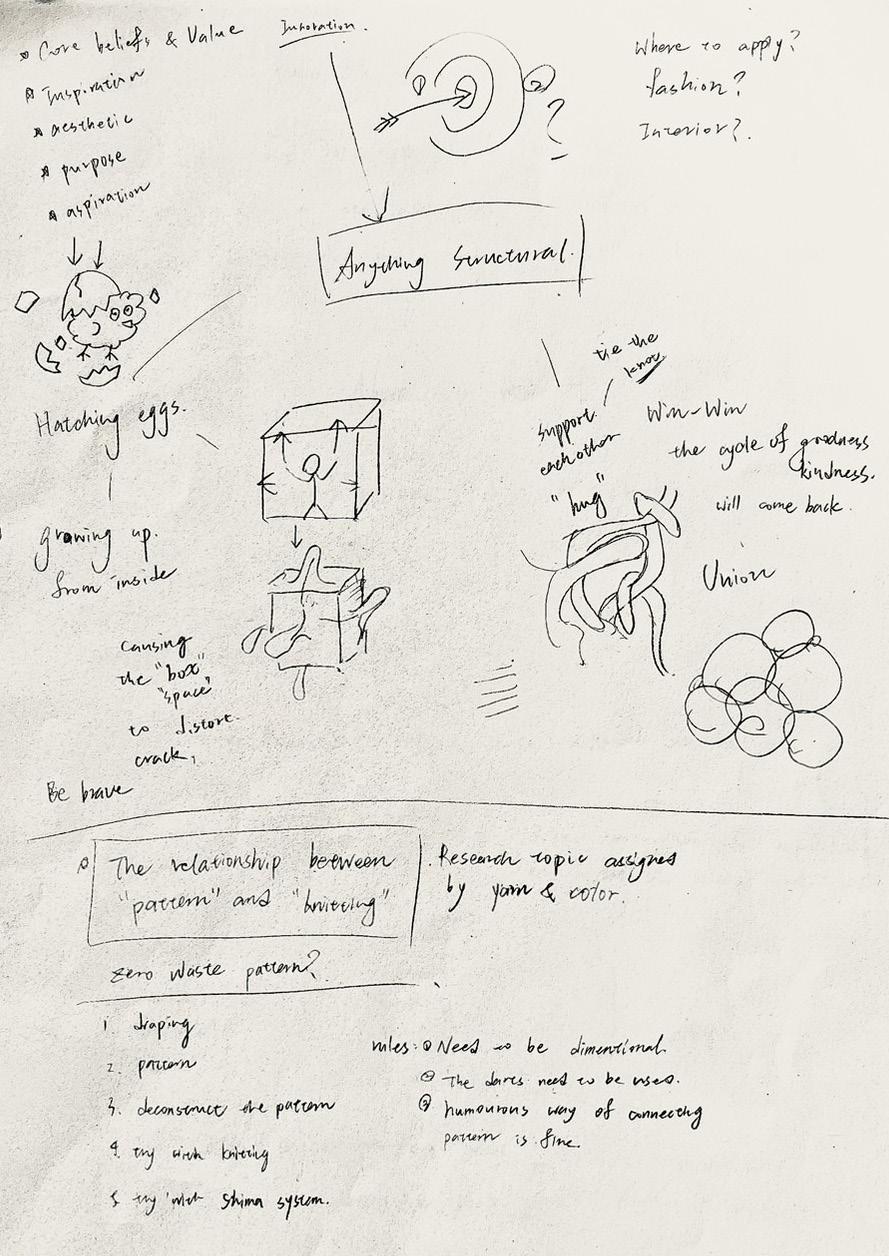 Core beliefs & Value
Inspiration
aesthetic
purpose
aspiration
Where to apply?
fashion?
Interior?
?
Anything Structural.
Hatching eggs.
growing up.
from inside
causing
the "box"
"space"
to distort.
crack,
Be brave
tie the
know
support
each other
"hug"
Win-Win
the cycle of goodness
kindness.
will come back.
Union
The relationship between
"pattern" and "knitting"
Research topic assigned
by yarn & color.
Zero Waste pattern?
1. draping
2. pattern
3. deconstruct the pattern
4. try with knitting
5. try with Shima system.
rules: ① Need to be dimentional.
② The darts need to be used.
③ humourous way of connecting
pattern is fine.